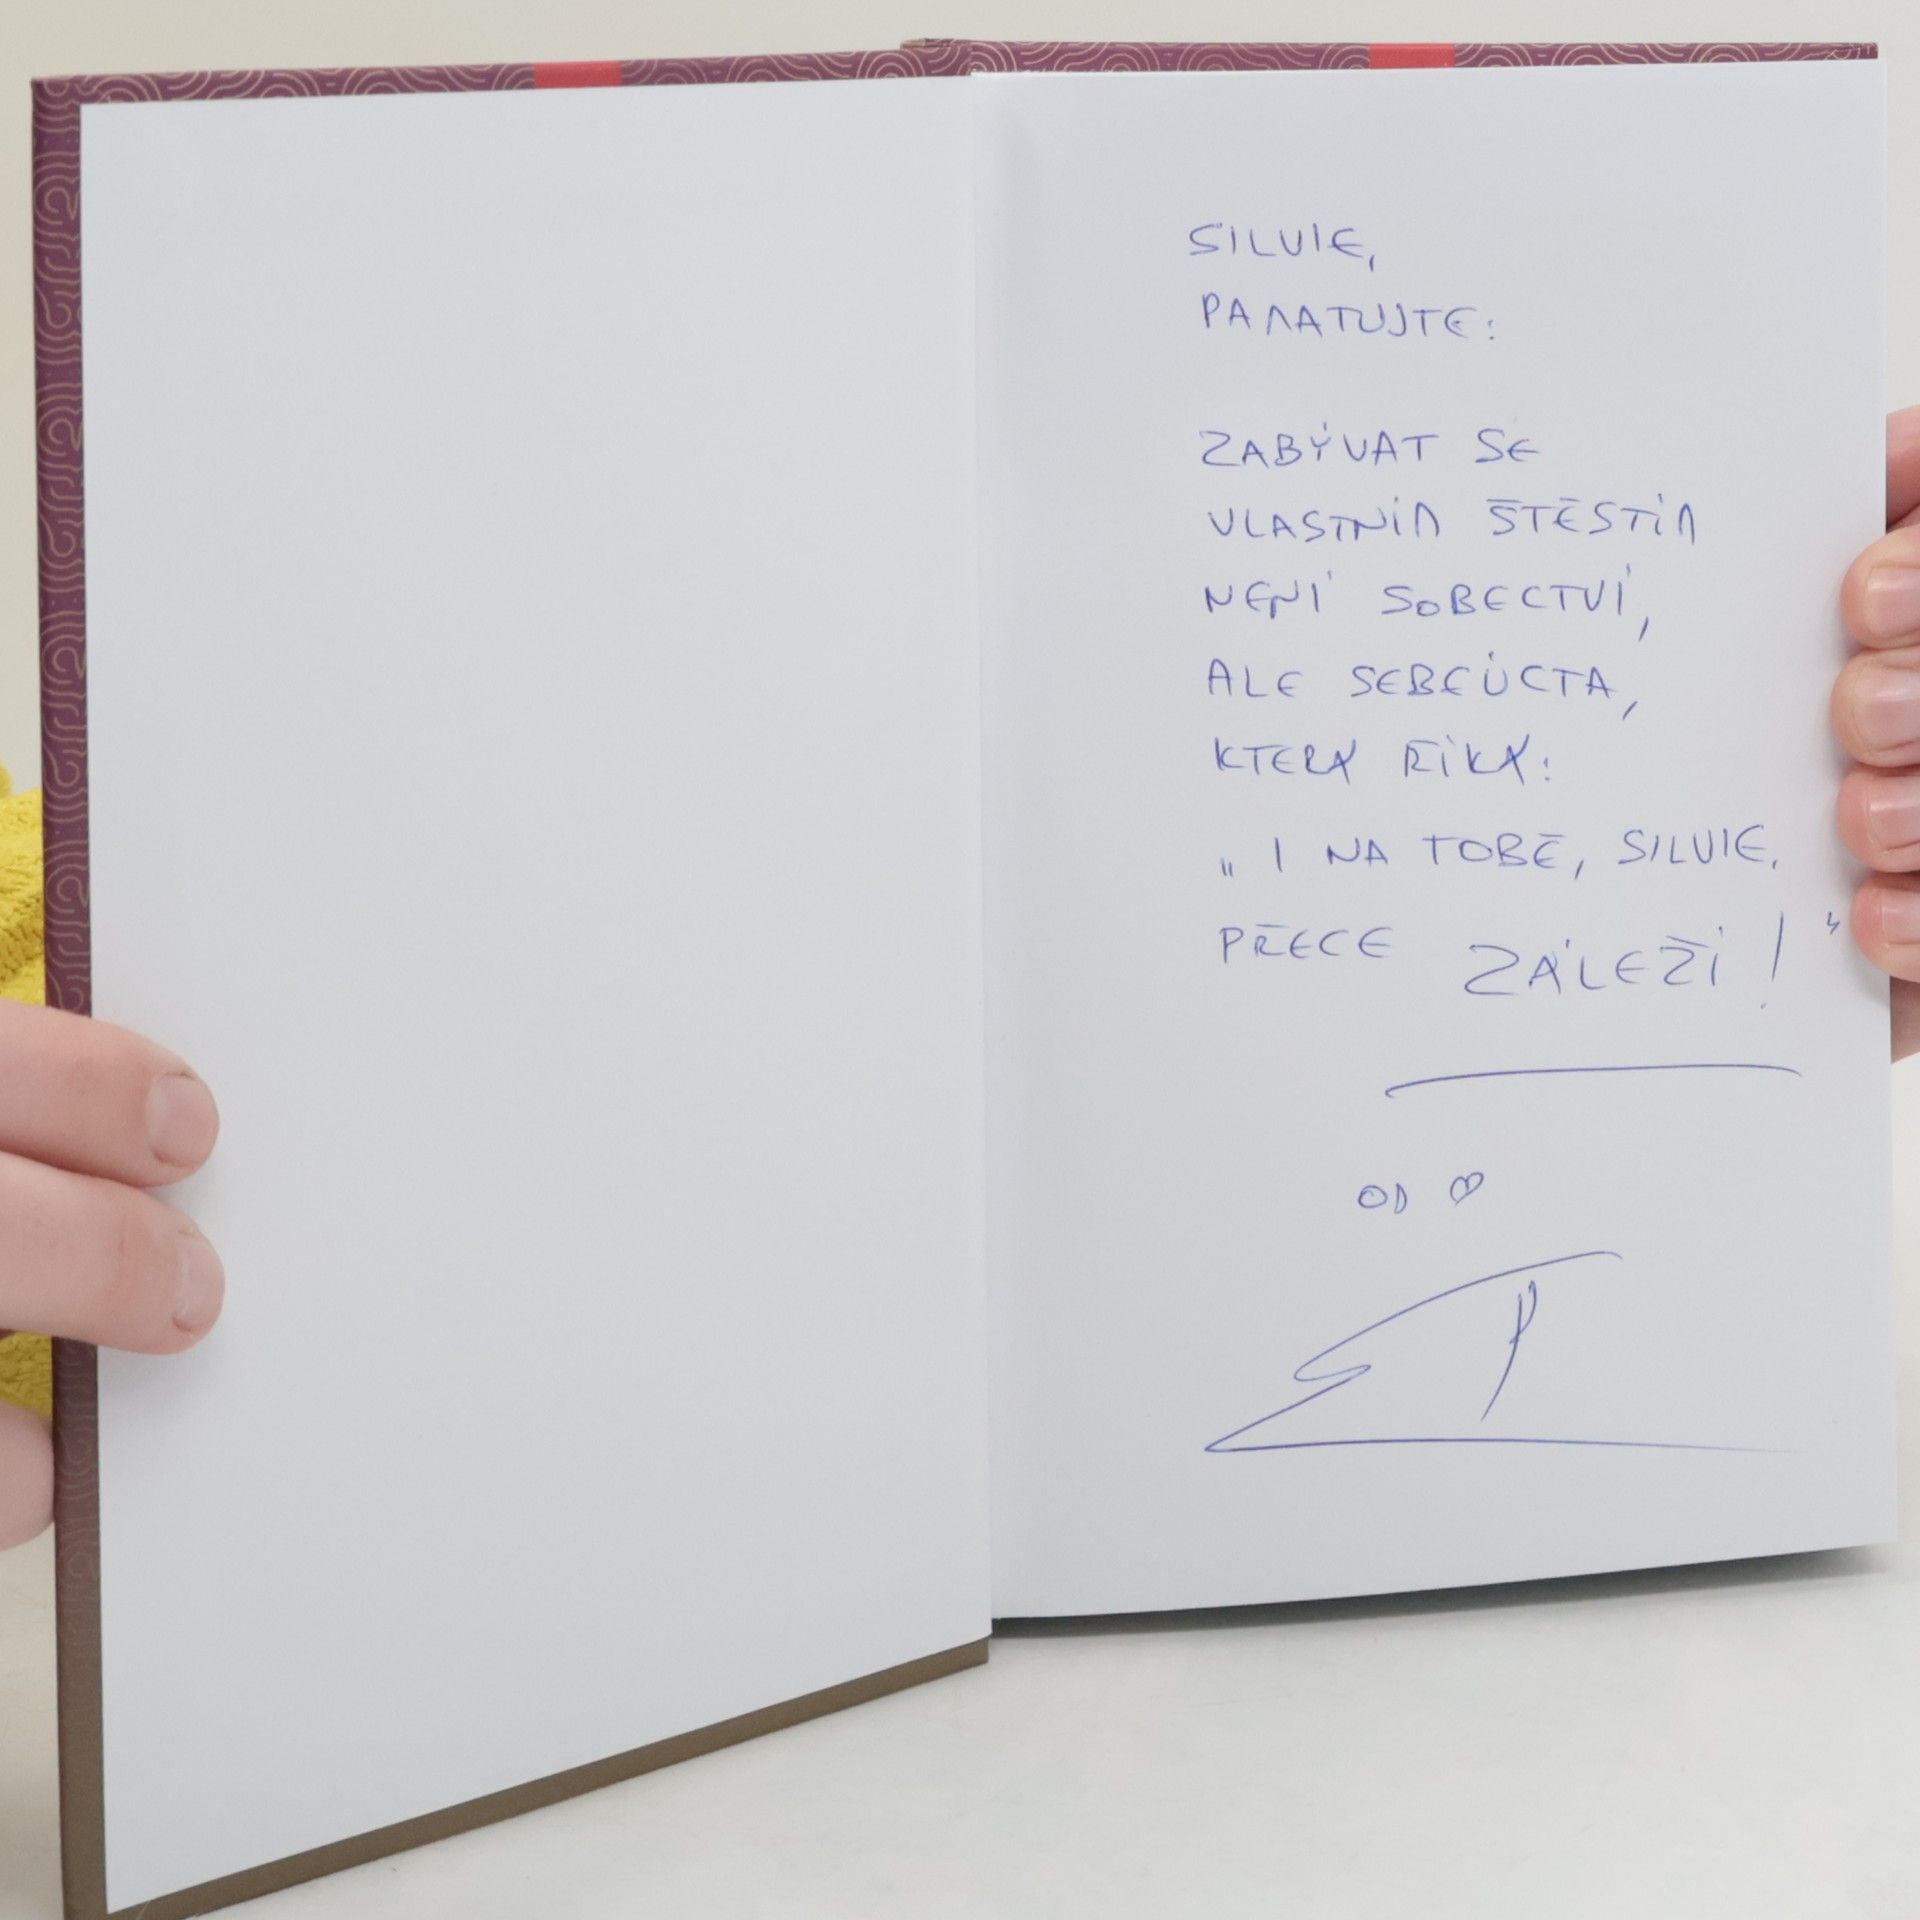 SILVIE,
PAMATUJTE:
ZABÝVAT SE
VLASTNÍM ŠTĚSTÍM
NENÍ SOBECTVÍ,
ALE SEBEÚCTA,
KTERÁ ŘÍKÁ:
„ I NA TOBĚ, SILVIE,
PŘECE ZÁLEŽÍ! “
OD ♡